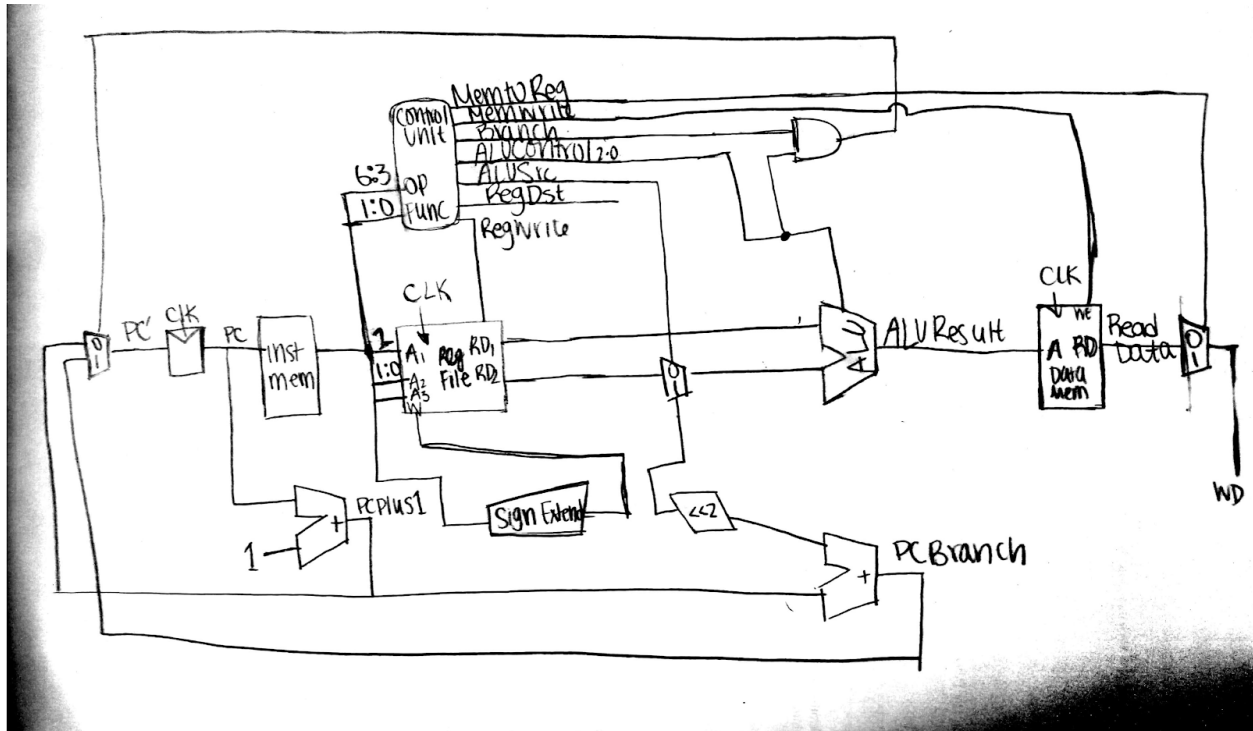 MemtoReg
MemWrite
Branch
ALUControl2:0
ALUSrc
RegDst
RegWrite
Control
Unit
6:3
OP
1:0
Func
PC'
CLK
PC
Inst
mem
2
1:0
CLK
A1
A2
A3
W
Reg
File
RD1
RD2
0
1
0
1
ALUResult
CLK
WE
A RD
Data
Mem
Read
Data
0
1
WD
1
+
PCPlus1
Sign Extend
<<2
+
PCBranch